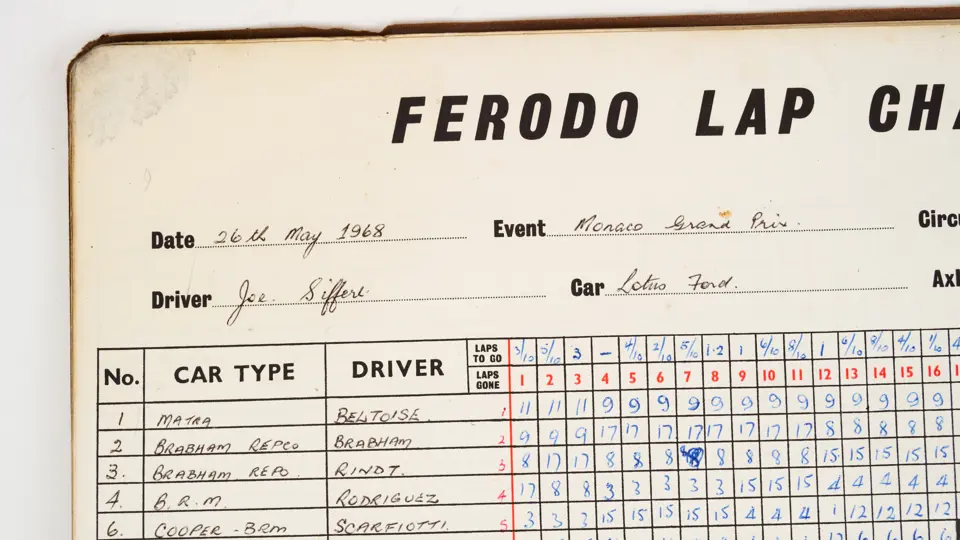 FERODO LAP CHA
Date 26th May 1968 Event Monaco Grand Prix. Circu
Driver Joe. Siffert. Car Lotus Ford. Axl
No. CAR TYPE DRIVER LAPS TO GO 3/10 5/10 3 – 4/10 2/10 5/10 1·2 1 6/10 8/10 1 6/10 9/10 4/10 1/10 4
LAPS GONE 1 2 3 4 5 6 7 8 9 10 11 12 13 14 15 16 1
1 MATRA BELTOISE. 1 11 11 11 9 9 9 9 9 9 9 9 9 9 9 9 9
2 BRABHAM REPCO BRABHAM 2 9 9 9 17 17 17 17 17 17 17 17 8 8 8 8 8
3. BRABHAM REPO. RINDT. 3 8 17 17 8 8 8 8 8 8 8 15 15 15 15 15
4. B.R.M. RODRIGUEZ 4 17 8 8 3 3 3 3 3 15 15 15 4 4 4 4 4
6. COOPER - BRM SCARFIOTTI. 5 3 3 3 15 15 15 15 15 4 4 4 1 12 12 12 12